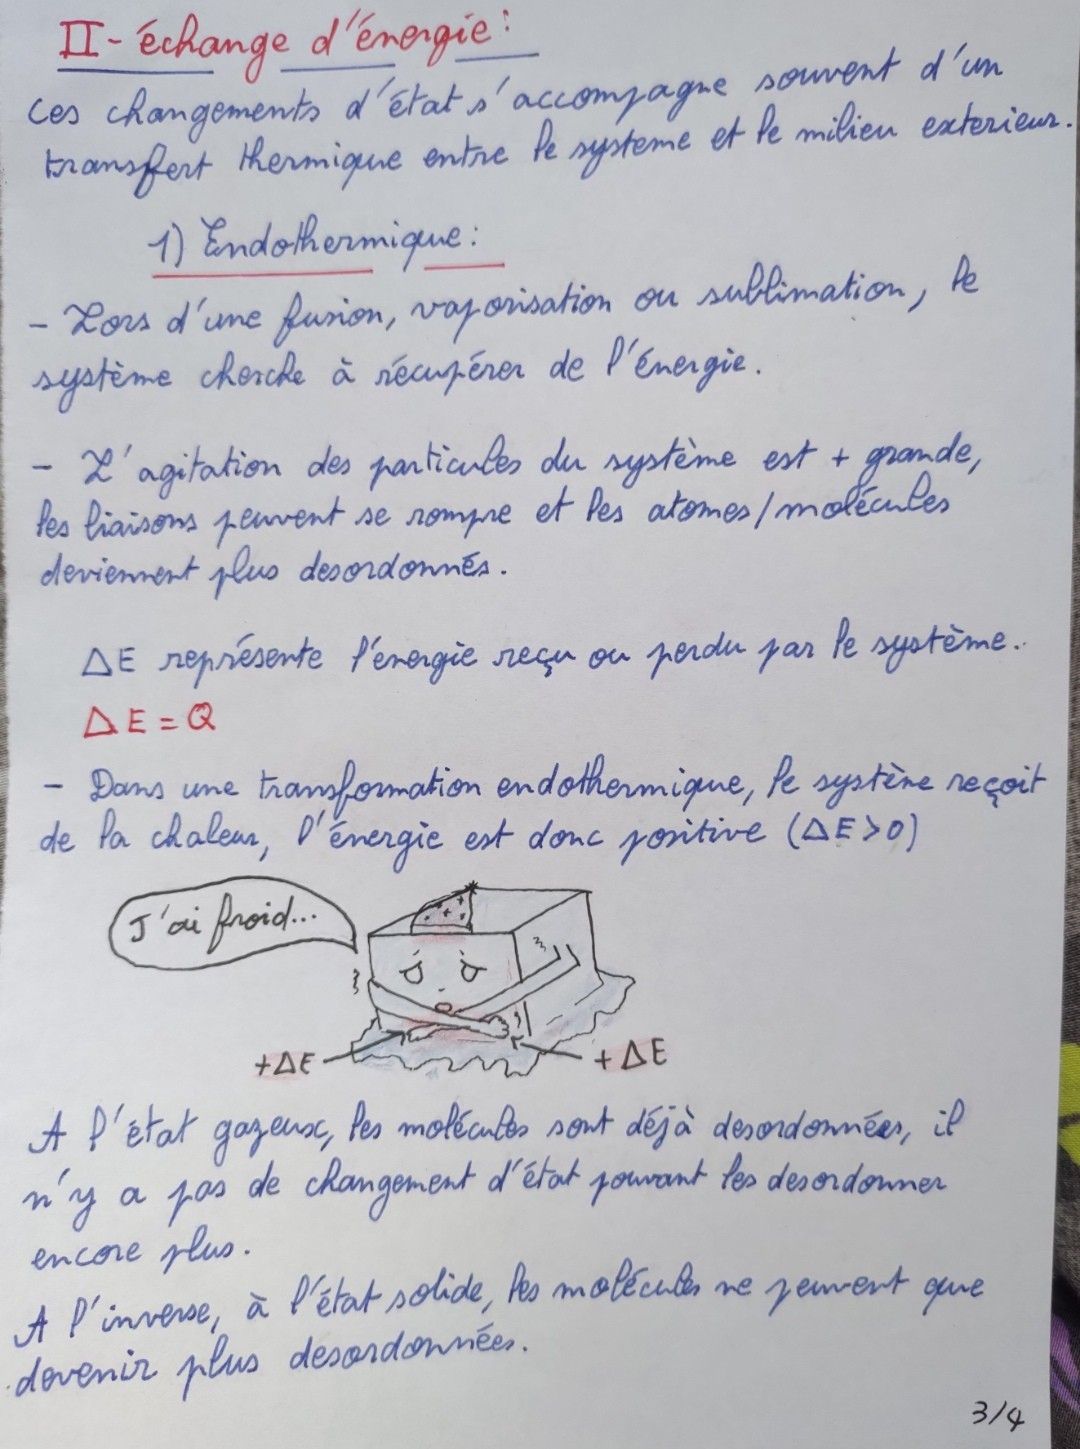 II- échange d'énergie:
Ces changements d'état s'accompagne souvent d'un
transfert thermique entre le systeme et le milieu exterieur.
1) Endothermique:
- Lors d'une fusion, vaporisation ou sublimation, le
système cherche à récupérer de l'énergie.
- L'agitation des particules du système est + grande,
les liaisons peuvent se rompre et les atomes/molécules
deviennent plus desordonnés.
ΔE représente l'énergie reçu ou perdu par le système.
ΔE = Q
- Dans une transformation endothermique, le système reçoit
de la chaleur, l'énergie est donc positive (ΔE>0)
J'ai froid...
+ΔE
+ΔE
A l'état gazeux, les molécules sont déjà desordonnées, il
n'y a pas de changement d'état pouvant les desordonner
encore plus.
A l'inverse, à l'état solide, les molécules ne peuvent que
devenir plus desordonnées.
3/4